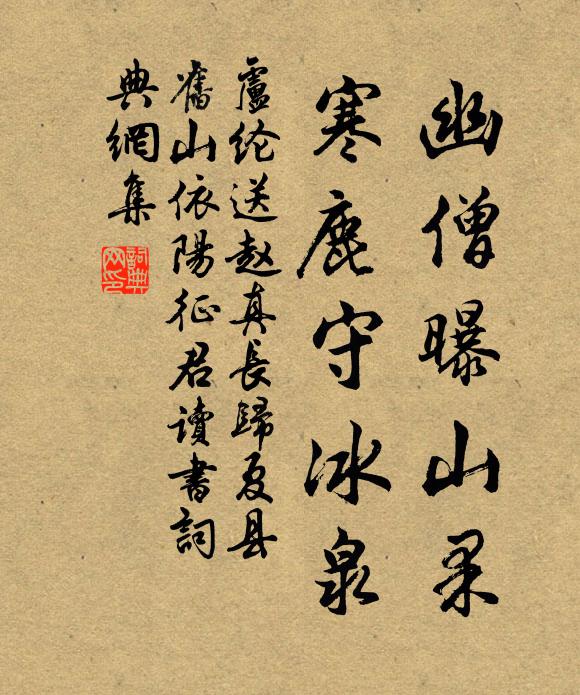 幽僧曝山果
寒鹿守冰泉
盧纶送赵真長歸夏县
舊山依陽征君讀書詞
典網集
詞典
网印